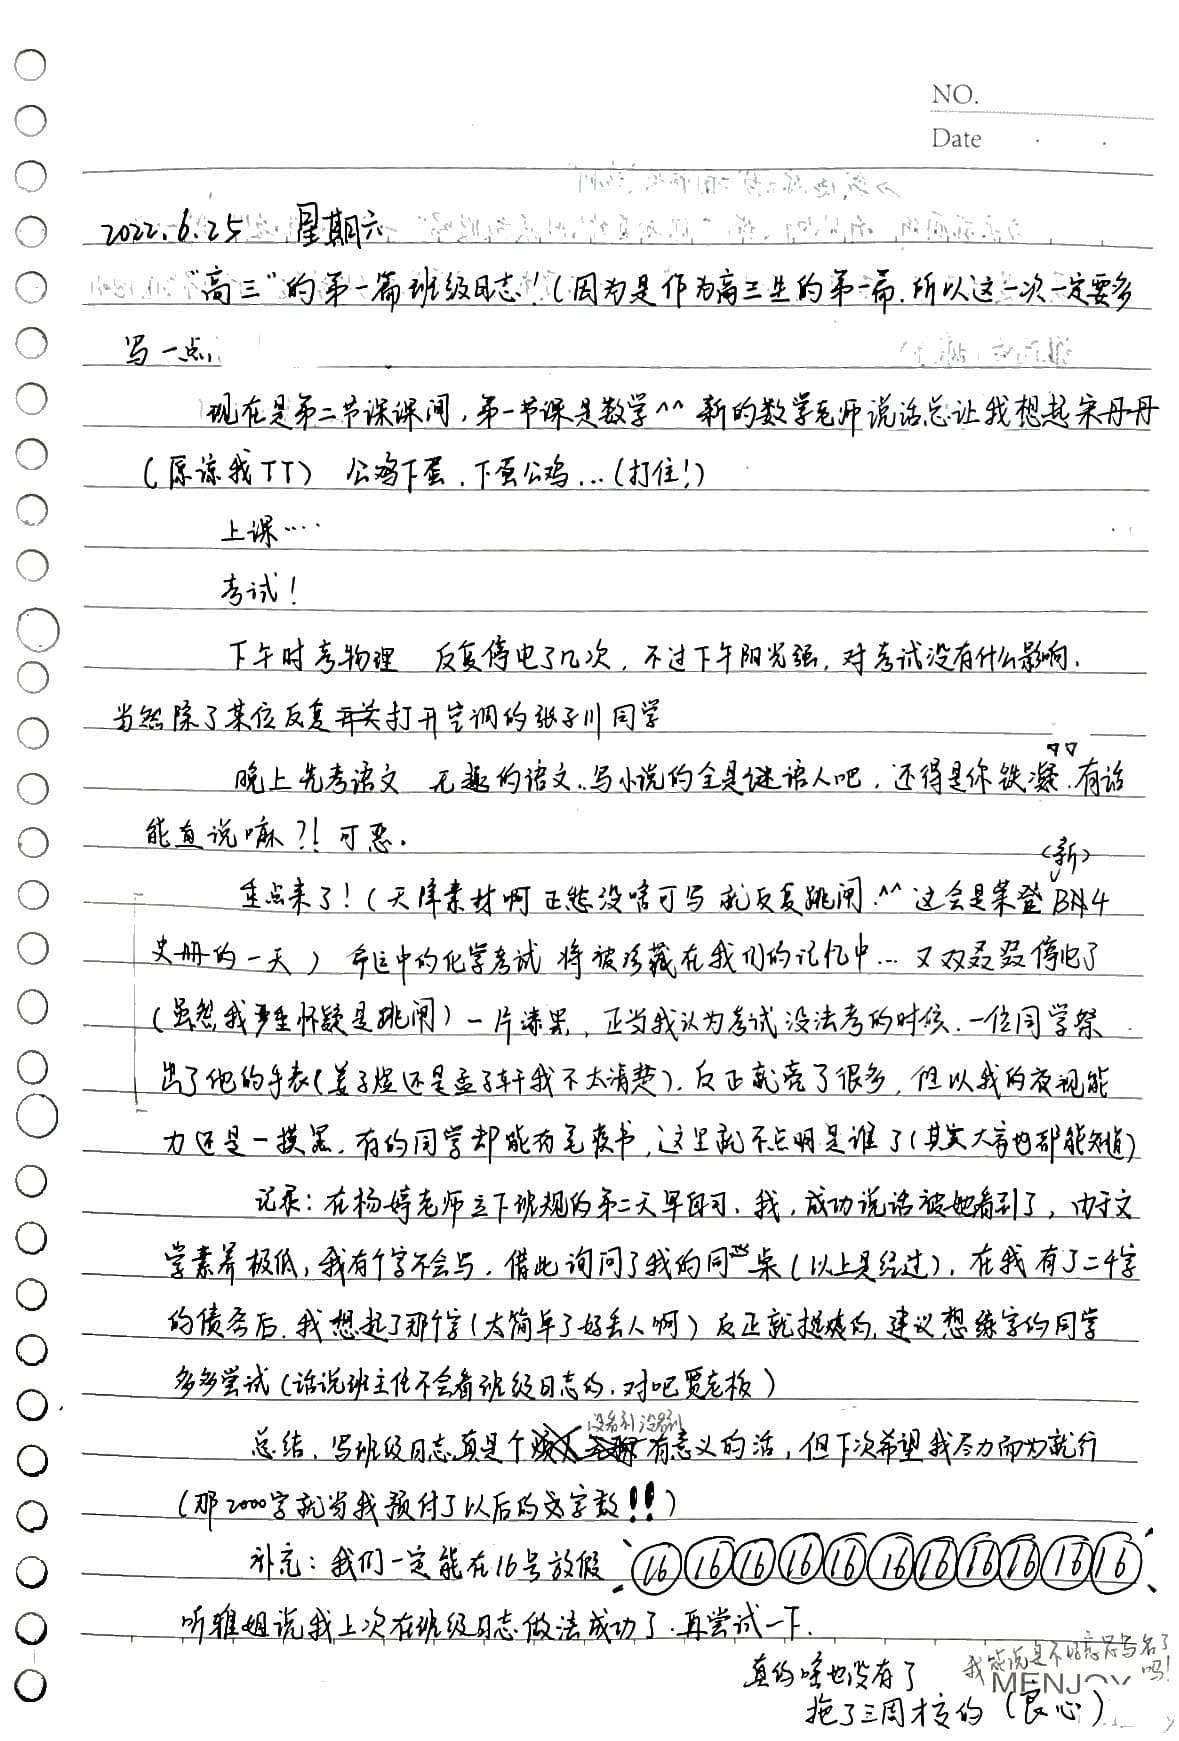 NO.
Date
2022.6.25 星期六
"高三"的第一篇班级日志!(因为是作为高三生的第一篇.所以这一次一定要多
写一点,
现在是第二节课课间,第一节课是数学^^ 新的数学老师说话总让我想起宋丹丹
(原谅我TT) 公鸡下蛋.下蛋公鸡...(打住!)
上课....
考试!
下午时考物理 反复停电了几次,不过下午阳光强,对考试没有什么影响.
当然除了某位反复打开空调的张子川同学
晚上先考语文 无趣的语文..写小说的全是谜语人吧.还得是你铁凝.有话
能直说嘛?!可恶.
(新)
重点来了!(天降素材啊 正愁没啥可写 就反复跳闸.^^ 这会是荣登BN4
史册的一天) 命运中的化学考试 将被珍藏在我们的记忆中...又双叒叕停电了
(虽然我严重怀疑是跳闸)一片漆黑,正当我认为考试没法考的时候.一位同学祭
出了他的手表(姜子煜还是孟子轩我不太清楚).反正就亮了很多,但以我的夜视能
力还是一摸黑.有的同学却能奋笔疾书,这里就不点明是谁了(其实大家也都能知道)
记录:在杨婷老师立下班规的第二天早自习.我,成功说话被她看到了,由于文
学素养极低,我有个字不会写.借此询问了我的同桌(以上是经过).在我有了二千字
的债务后.我想起了那个字(太简单了好丢人啊)反正就挺爽的,建议想练字的同学
多多尝试(话说班主任不会看班级日志的.对吧贾老板)
没看到没看到
总结.写班级日志真是个有意义的活,但下次希望我尽力而为就行
(那2000字就当我预付了以后的文字数!!)
补充:我们一定能在16号放假 16 16 16 16 16 16 16 16 16 16 16
听雅姐说我上次在班级日志做法成功了.再尝试一下.
真的啥也没有了
我能说是不好意思写名了吗!
MENJOY
拖了三周才交的(良心)